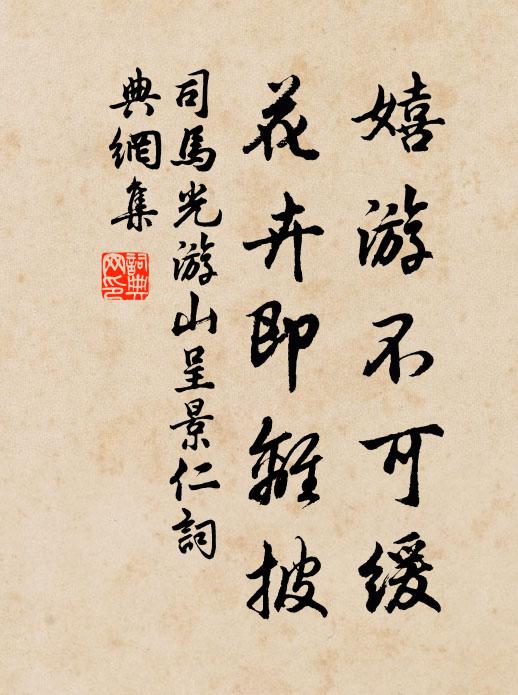 嬉游不可緩
花卉即離披
司馬光游山呈景仁詞
典網集
詞典網印